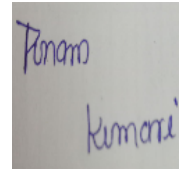 Punam
Kumari